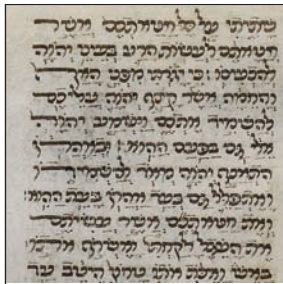 שתיתי על כל חטאתכם אשר
חטאתם לעשות הרע בעיני יהוה
להכעיסו׃ כי יגרתי מפני האף
והחמה אשר קצף יהוה עליכם
להשמיד אתכם וישמע יהוה
אלי גם בפעם ההוא׃ ובאהרן
התאנף יהוה מאד להשמידו
ואתפלל גם בעד אהרן בעת ההוא׃
ואת חטאתכם אשר עשיתם
את העגל לקחתי ואשרף אתו
באש ואכת אתו טחון היטב עד